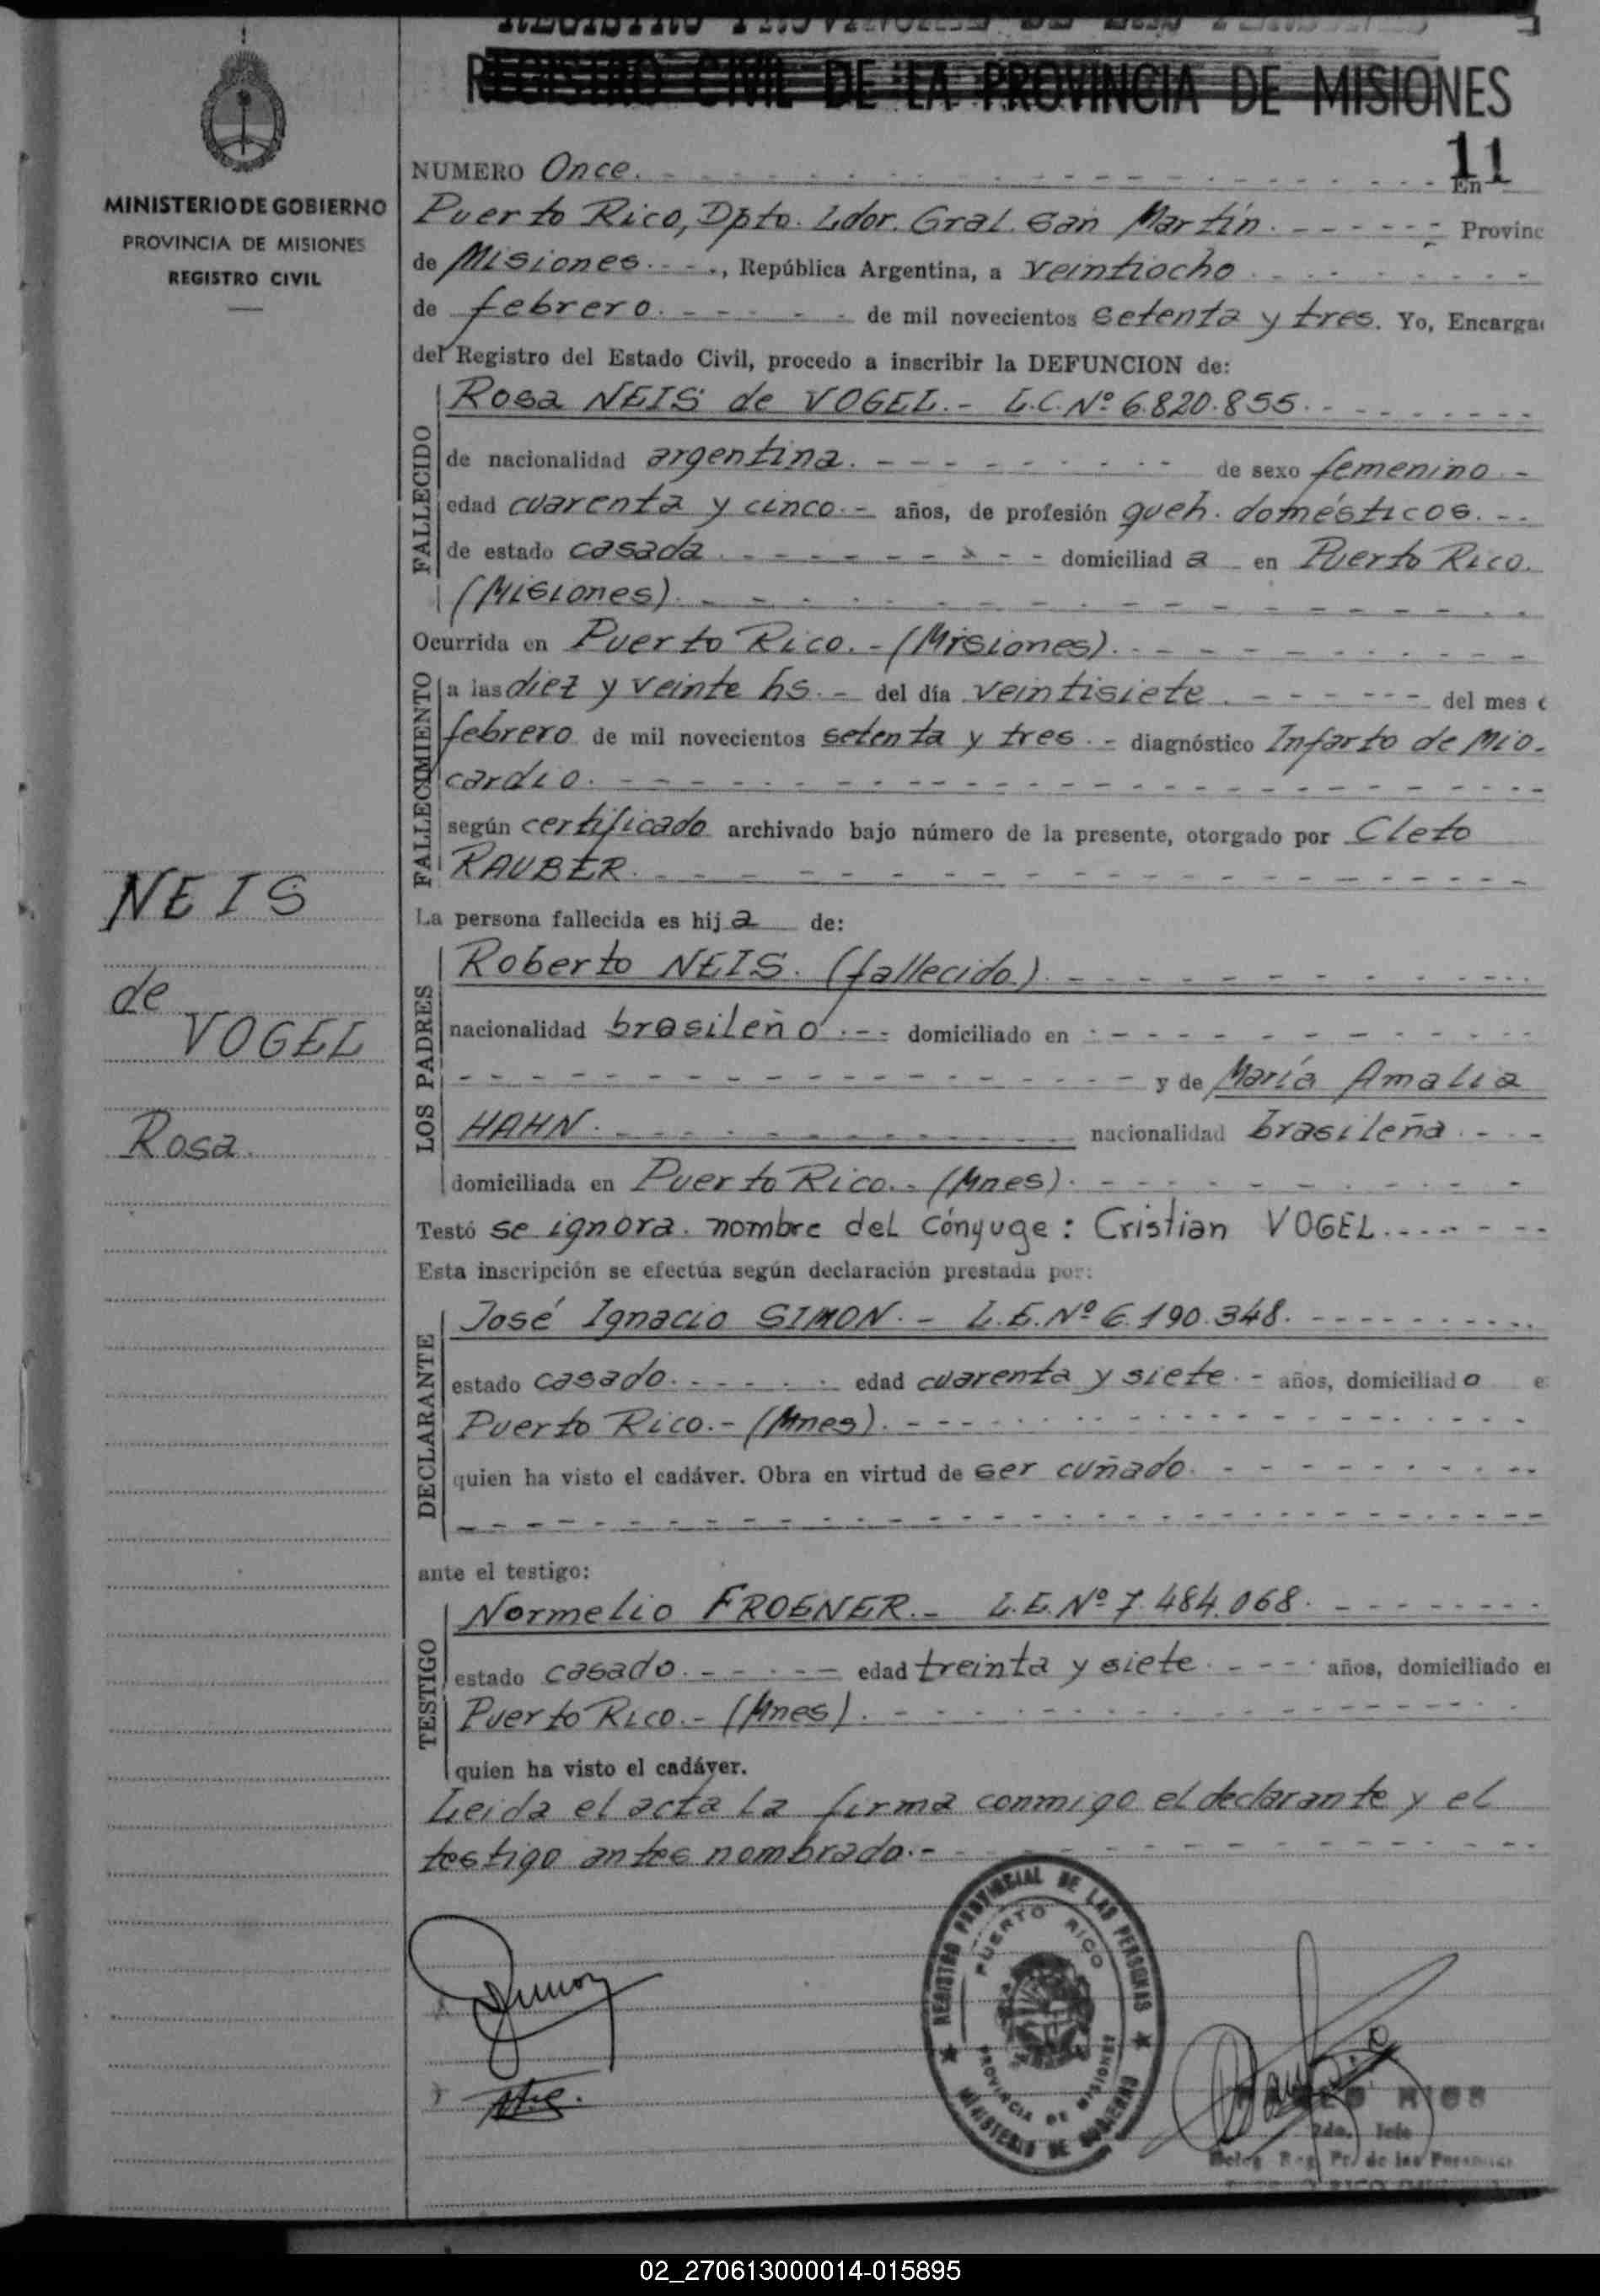 REGISTRO PROVINCIAL DE LAS PERSONAS
REGISTRO CIVIL DE LA PROVINCIA DE MISIONES
MINISTERIO DE GOBIERNO
PROVINCIA DE MISIONES
REGISTRO CIVIL
11
NUMERO Once. En
Puerto Rico, Dpto. Ldor. Gral. San Martín. Provinc
de Misiones., República Argentina, a veintiocho
de febrero. de mil novecientos setenta y tres. Yo, Encarga
del Registro del Estado Civil, procedo a inscribir la DEFUNCION de:
FALLECIDO
Rosa NEIS de VOGEL.- L.C.Nº 6.820.855.
de nacionalidad argentina. de sexo femenino -
edad cuarenta y cinco.- años, de profesión queh. domésticos.
de estado casada. domiciliad a en Puerto Rico.
(Misiones).
Ocurrida en Puerto Rico.-(Misiones).
FALLECIMIENTO
a las diez y veinte hs.- del día veintisiete. del mes
febrero de mil novecientos setenta y tres.- diagnóstico Infarto de Mio-
cardio.
según certificado archivado bajo número de la presente, otorgado por Cleto
RAUBER.
NEIS
de
VOGEL
Rosa.
La persona fallecida es hija de:
LOS PADRES
Roberto NEIS. (fallecido).
nacionalidad brasileño.-- domiciliado en
y de María Amalia
HAHN. nacionalidad brasileña.
domiciliada en Puerto Rico.- (Mnes).
Testó se ignora. nombre del cónyuge: Cristian VOGEL.
Esta inscripción se efectúa según declaración prestada por:
DECLARANTE
José Ignacio SIMON.- L.E.Nº 6.190.348.
estado casado. edad cuarenta y siete.- años, domiciliado e
Puerto Rico.- (Mnes).
quien ha visto el cadáver. Obra en virtud de ser cuñado.
ante el testigo:
TESTIGO
Normelio FROENER.- L.E.Nº 7.484.068.
estado casado. edad treinta y siete. años, domiciliado en
Puerto Rico.- (Mnes).
quien ha visto el cadáver.
Leida el acta la firma conmigo el declarante y el
testigo antes nombrado.-
REGISTRO PROVINCIAL DE LAS PERSONAS
PUERTO RICO
PROVINCIA DE MISIONES
MINISTERIO DE GOBIERNO
RIOS
2do. Jefe
Deleg. Reg. Pr. de las Personas
02_270613000014-015895